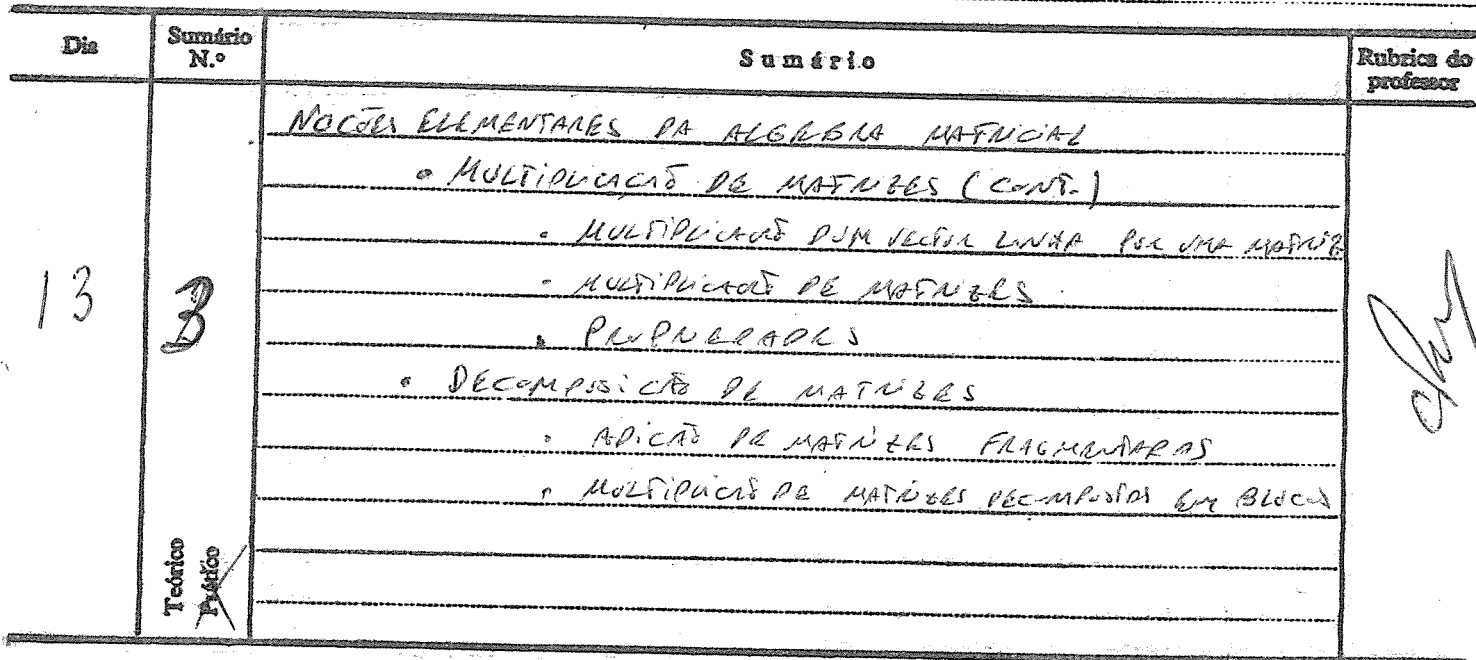 Dia
Sumário N.º
Sumário
Rubrica do professor
13
3
Teórico
Prático
NOÇÕES ELEMENTARES DA ALGEBRA MATRICIAL
• MULTIPLICAÇÃO DE MATRIZES (CONT.)
• MULTIPLICAÇÃO DUM VECTOR LINHA POR UMA MATRIZ
• MULTIPLICAÇÃO DE MATRIZES
• PROPRIEDADES
• DECOMPOSIÇÃO DE MATRIZES
• ADIÇÃO DE MATRIZES FRAGMENTADAS
• MULTIPLICAÇÃO DE MATRIZES DECOMPOSTAS EM BLOCOS